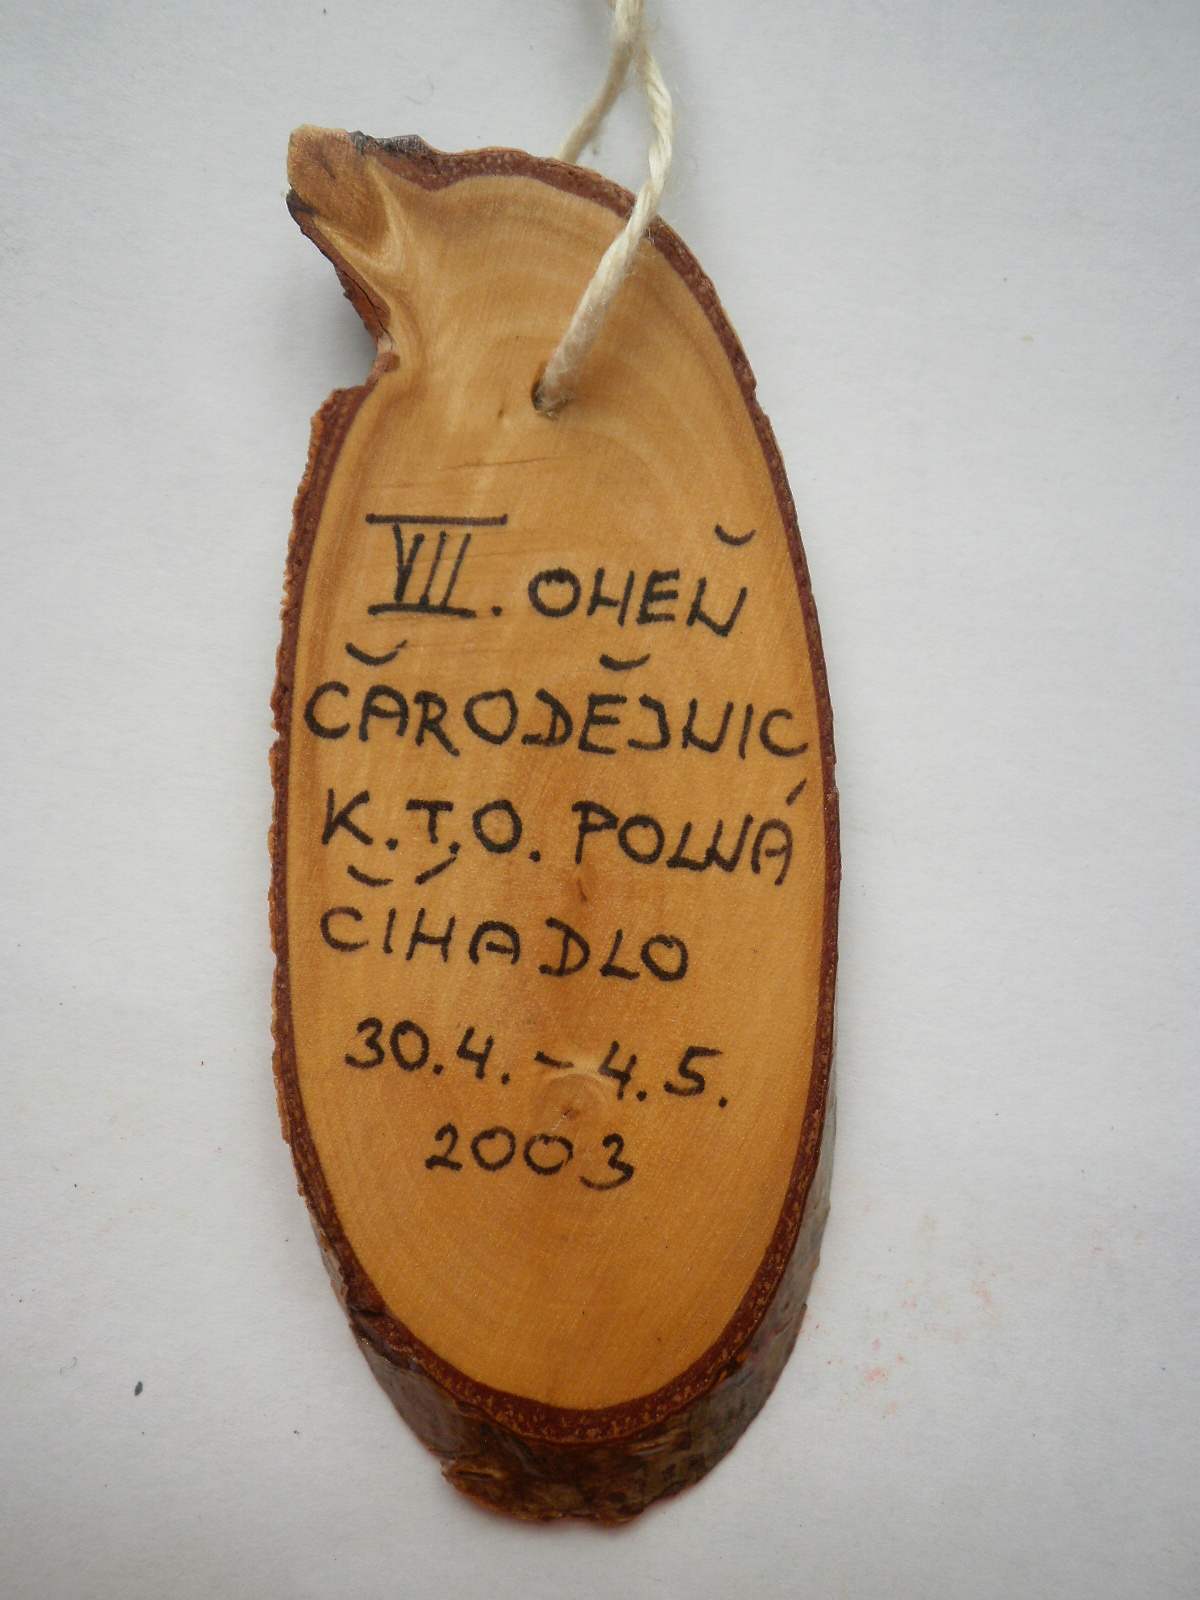 VII. OHEŇ
ČARODĚJNIC
K.T.O. POLNÁ
ČÍHADLO
30.4. - 4.5.
2003